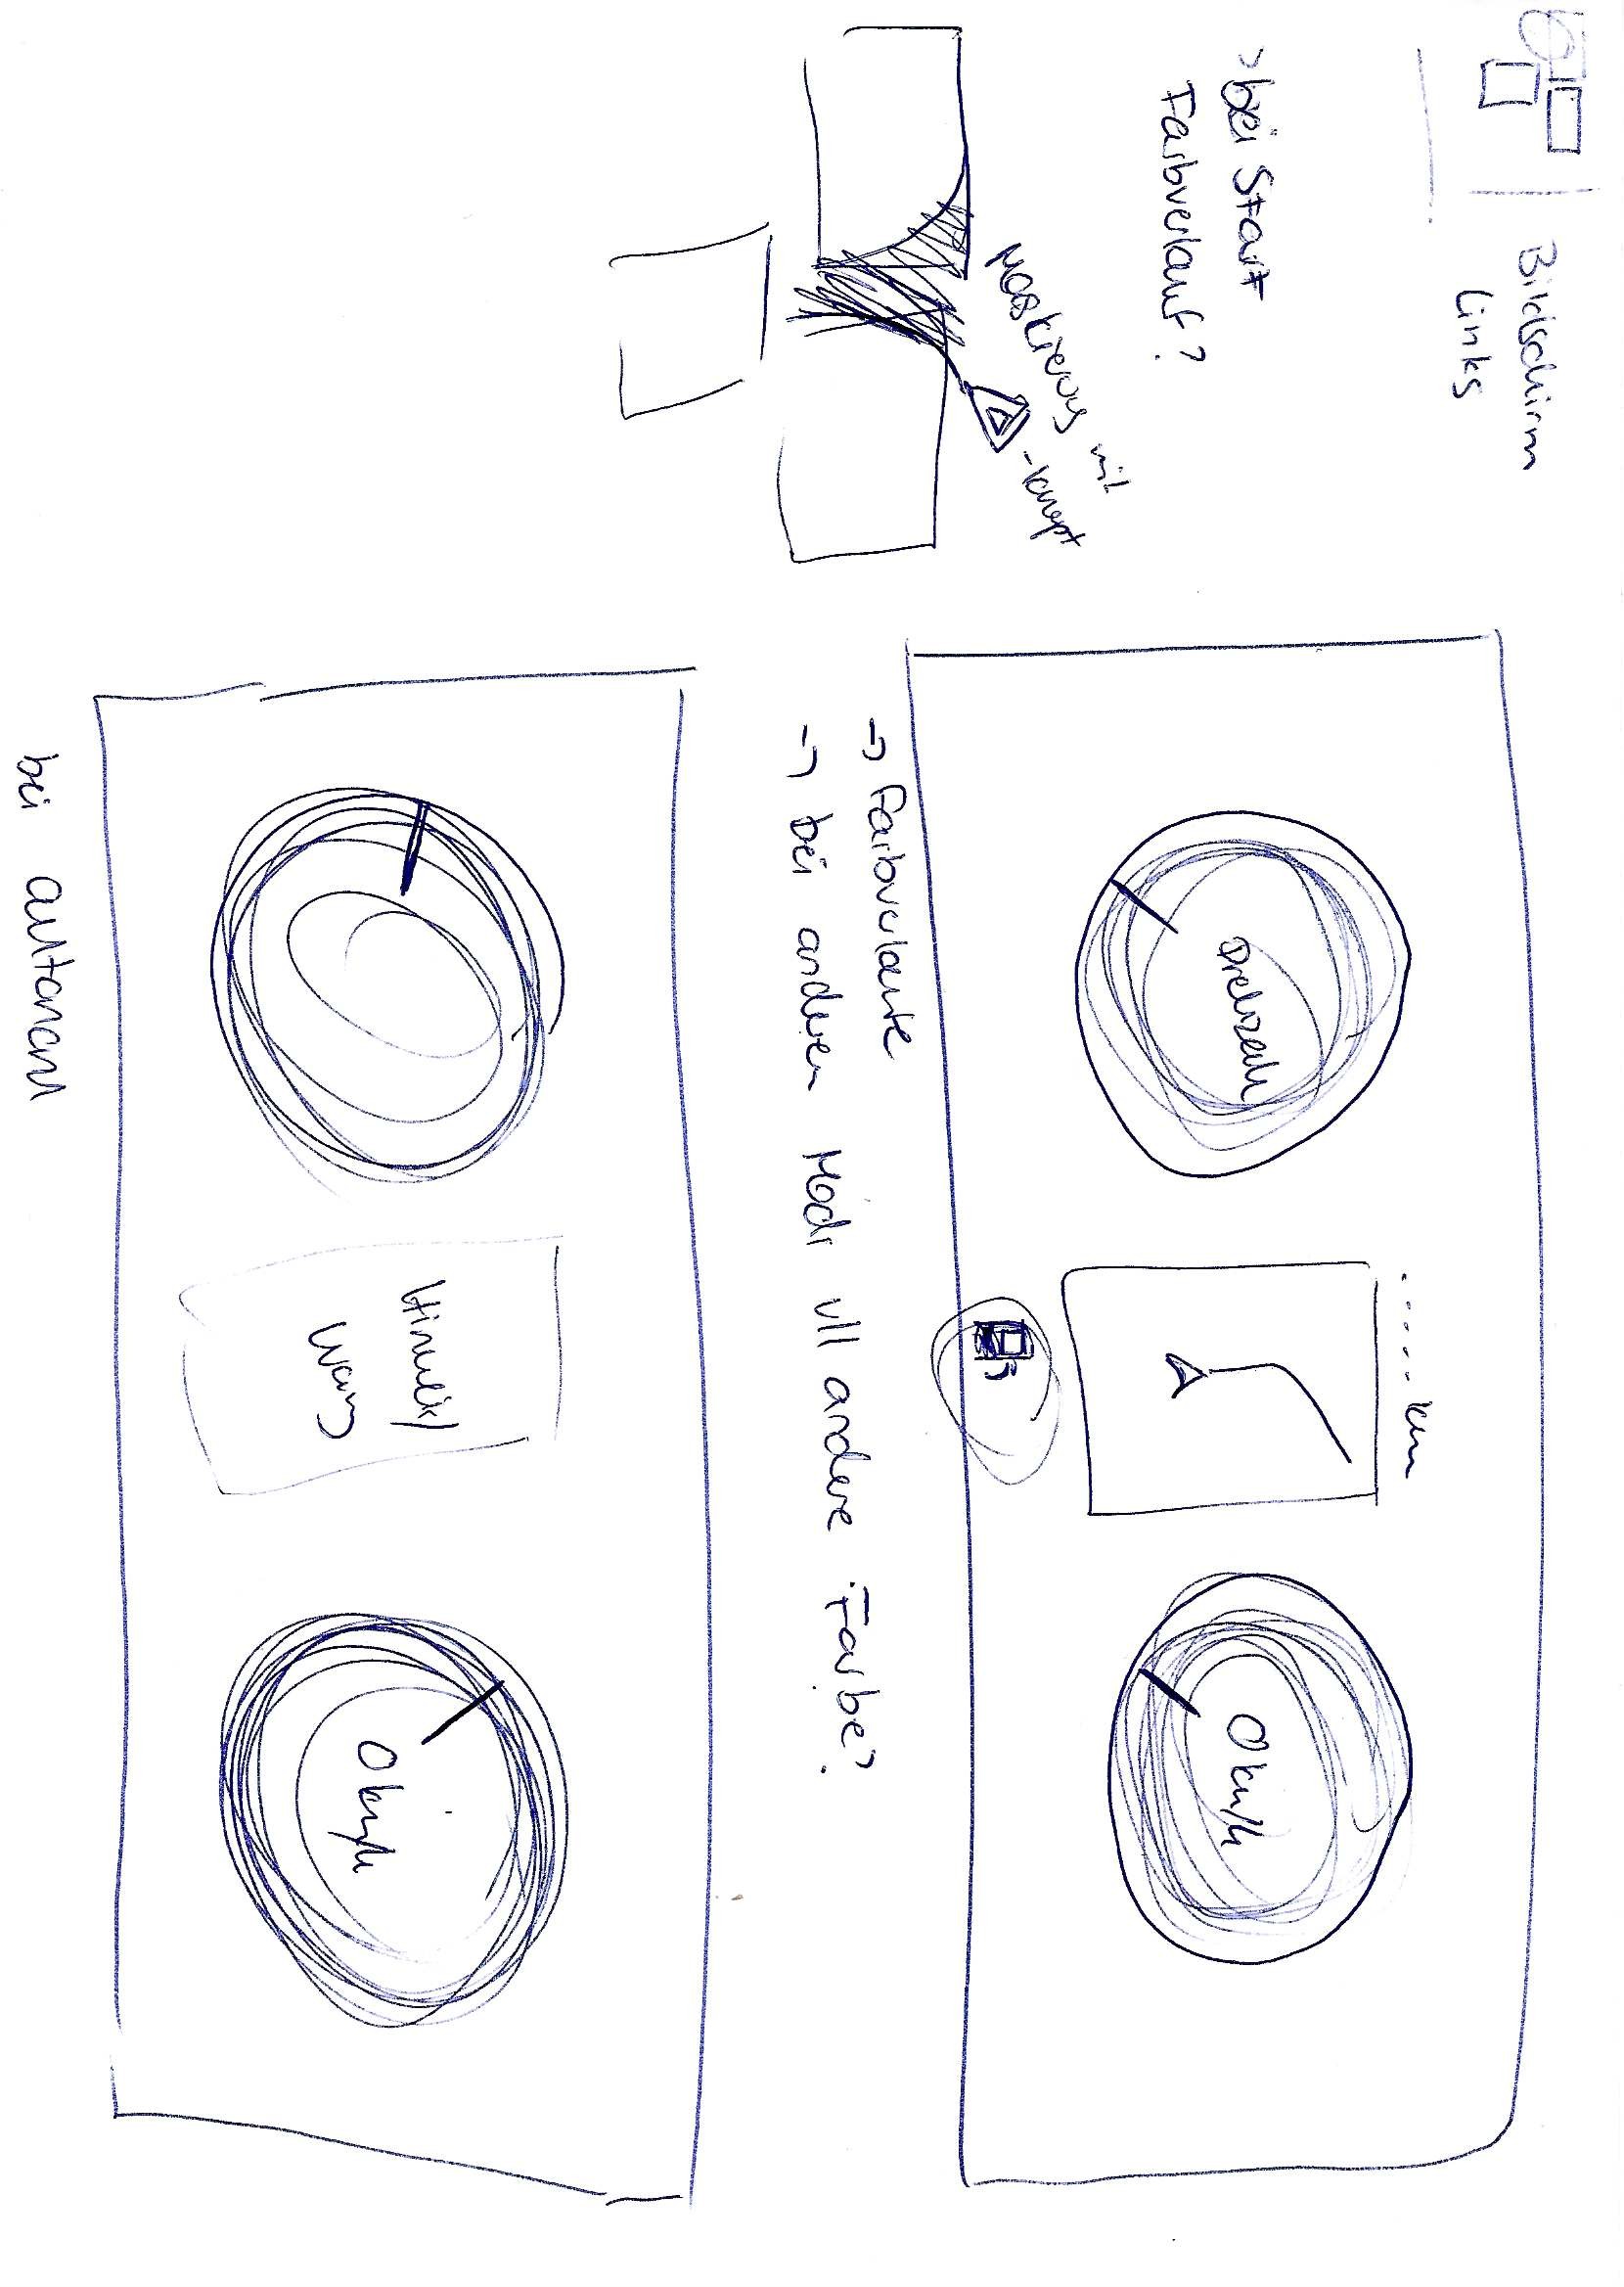 Bildschirm
Links
> bei Start
Farbverlauf?
Maskierung mit
-knopf
..... km
Drehzahl
0 km/h
→ Farbverläufe
→ bei anderen Modi vll andere Farbe?
Hinweis/
Warng
0 km/h
bei autonom